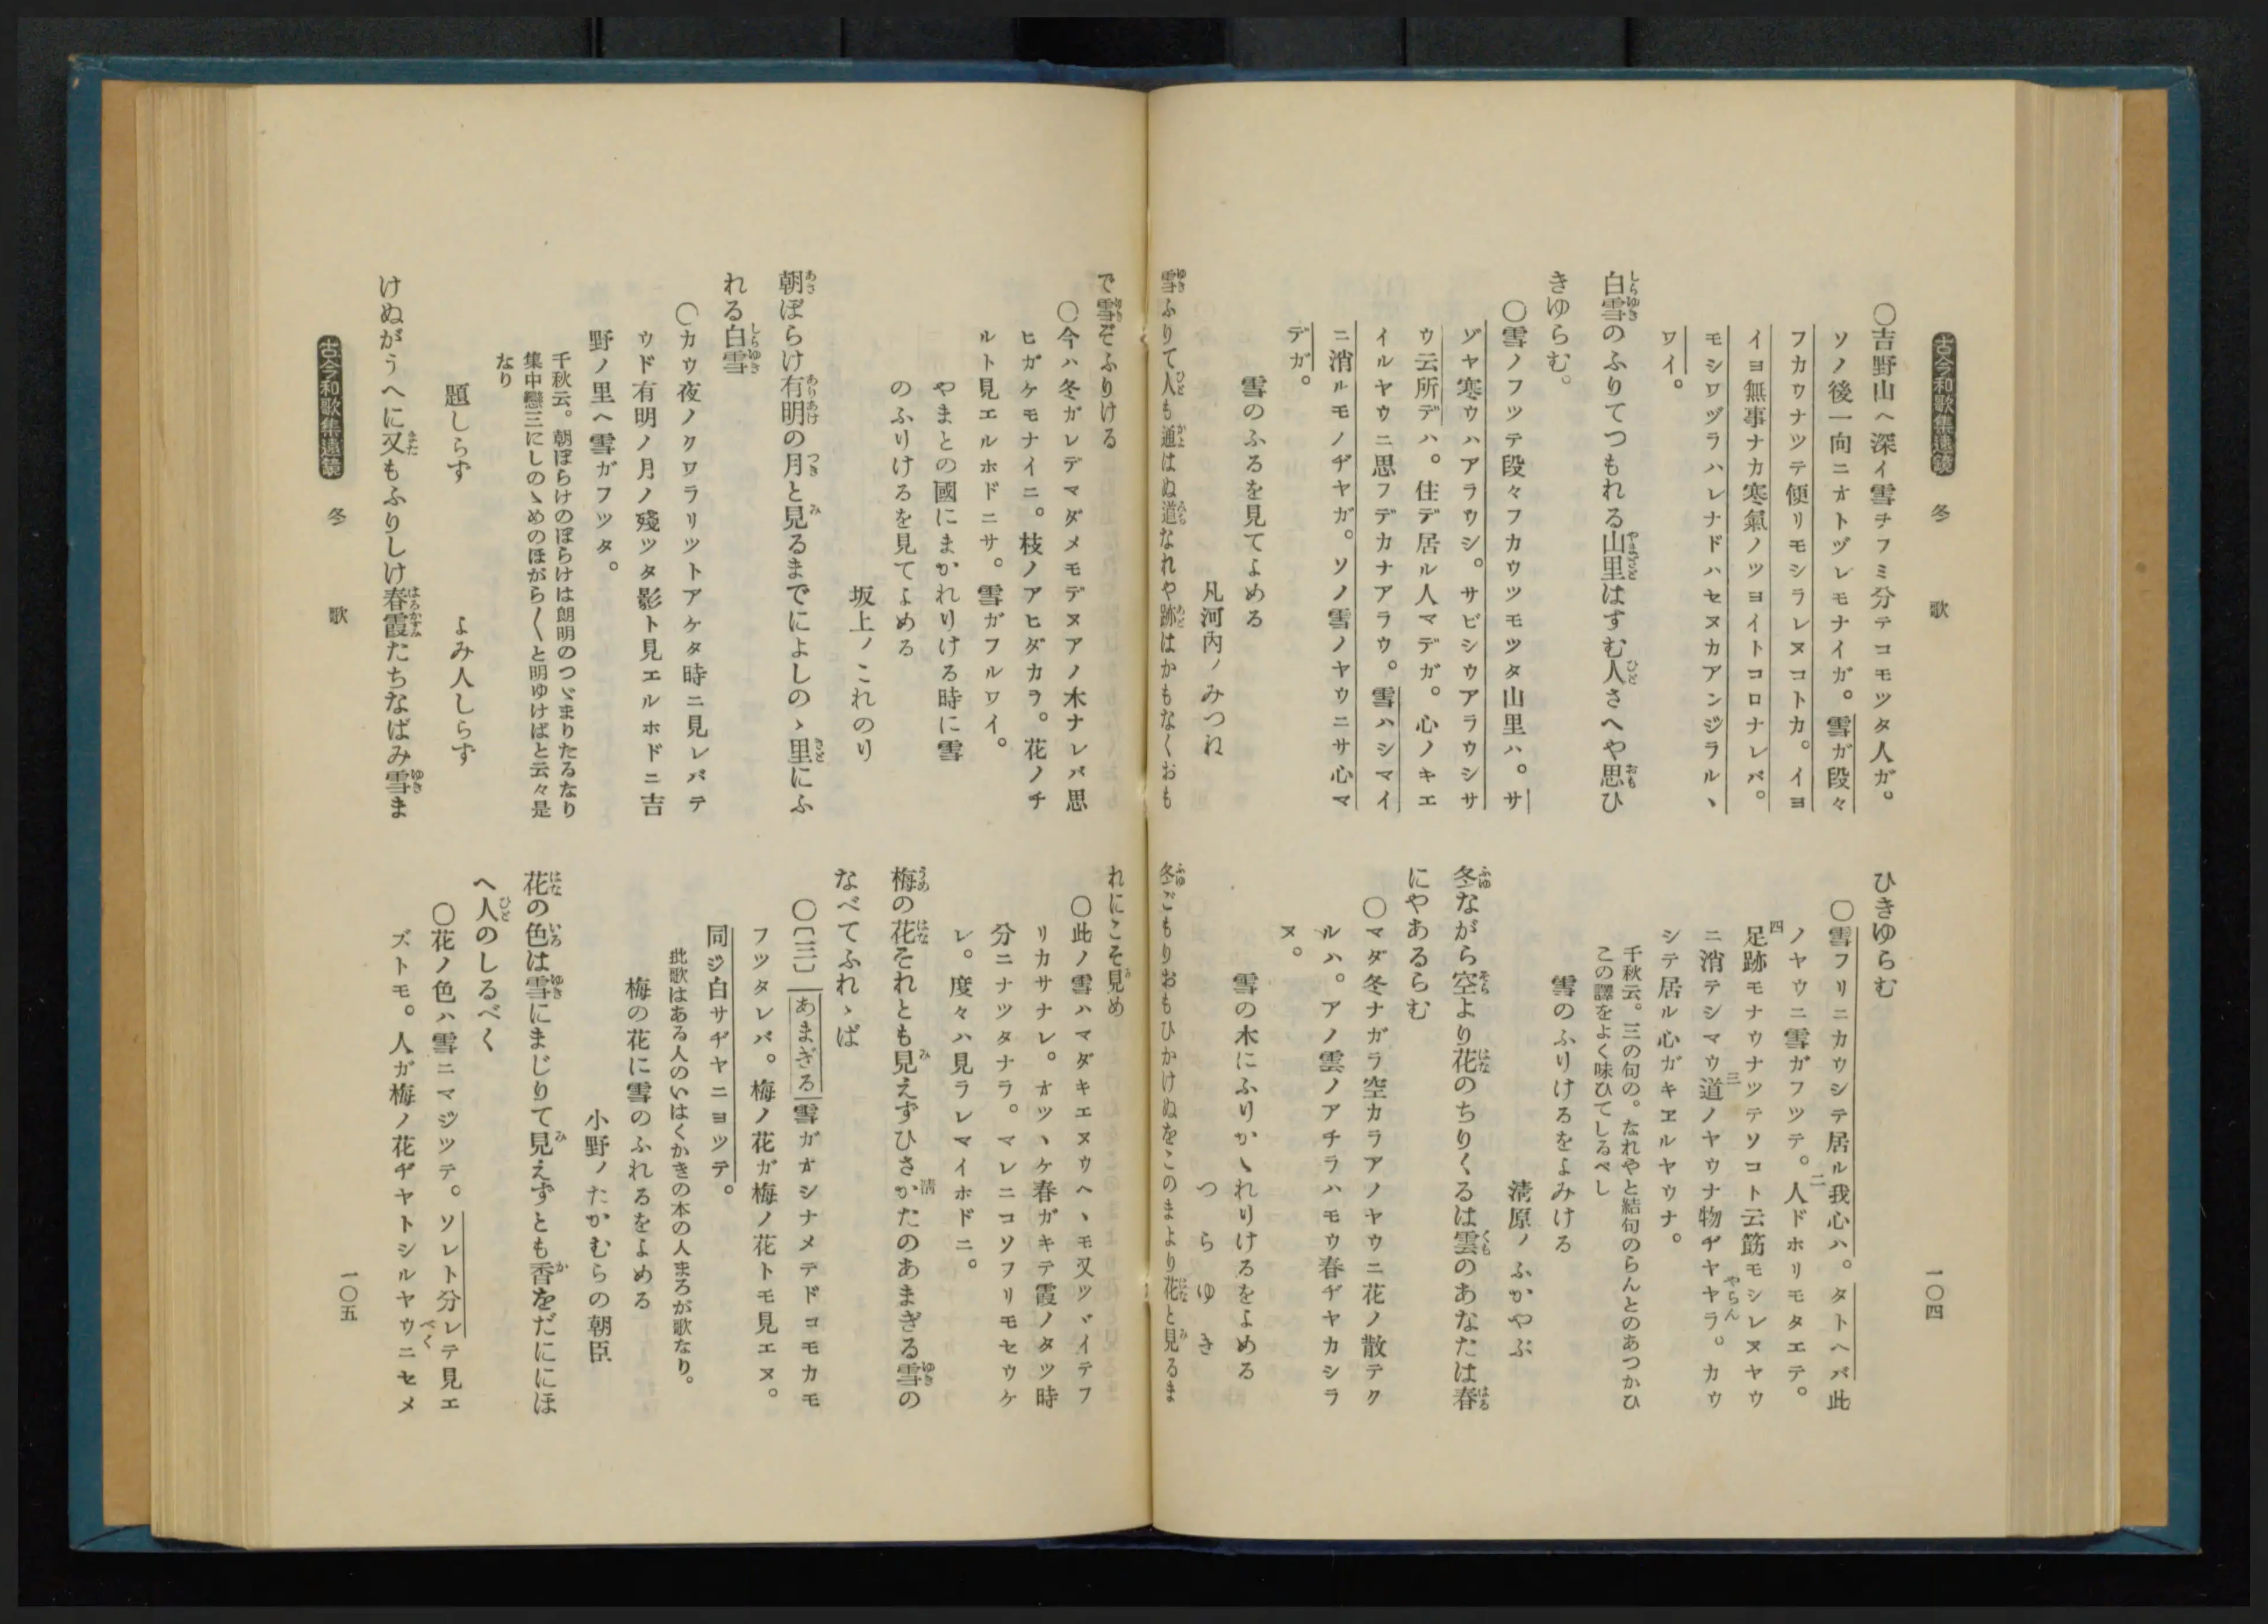 古今和歌集遠鏡　冬　歌
〇吉野山ヘ深イ雪ヲフミ分テコモツタ人ガ。
ソノ後一向ニオトヅレモナイガ。雪ガ段々
フカウナツテ便リモシラレヌコトカ。イヨ
イヨ無事ナカ寒氣ノツヨイトコロナレバ。
モシワヅラハレナドハセヌカアンジラルヽ
ワイ。
白雪のふりてつもれる山里はすむ人さへや思ひ
きゆらむ。
〇雪ノフツテ段々フカウツモツタ山里ハ。サ
ゾヤ寒ウハアラウシ。サビシウアラウシサ
ウ云所デハ。住デ居ル人マデガ。心ノキエ
イルヤウニ思フデカナアラウ。雪ハシマイ
ニ消ルモノヂヤガ。ソノ雪ノヤウニサ心マ
デガ。
雪のふるを見てよめる
凡河內ノみつね
雪ふりて人も通はぬ道なれや跡はかもなくおも
ひきゆらむ
〇雪フリニカウシテ居ル我心ハ。タトヘバ此
ノヤウニ雪ガフツテ。人ドホリモタエテ。
足跡モナウナツテソコト云筋モシレヌヤウ
ニ消テシマウ道ノヤウナ物ヂヤヤラ。カウ
シテ居ル心ガキヱルヤウナ。
千秋云。三の句の。なれやと結句のらんとのあつかひ
この譯をよく味ひてしるべし
雪のふりけるをよみける
淸原ノふかやぶ
冬ながら空より花のちりくるは雲のあなたは春
にやあるらむ
〇マダ冬ナガラ空カラアノヤウニ花ノ散テク
ルハ。アノ雲ノアチラハモウ春ヂヤカシラ
ヌ。
雪の木にふりかゝれりけるをよめる
つらゆき
冬ごもりおもひかけぬをこのまより花と見るま
一〇四
で雪ぞふりける
〇今ハ冬ガレデマダメモデヌアノ木ナレバ思
ヒガケモナイニ。枝ノアヒダカラ。花ノチ
ルト見エルホドニサ。雪ガフルワイ。
やまとの國にまかれりける時に雪
のふりけるを見てよめる
坂上ノこれのり
朝ぼらけ有明の月と見るまでによしのゝ里にふ
れる白雪
〇カウ夜ノクワラリツトアケタ時ニ見レバテ
ウド有明ノ月ノ殘ツタ影ト見エルホドニ吉
野ノ里ヘ雪ガフツタ。
千秋云。朝ぼらけのぼらけは朗明のつゞまりたるなり
集中戀三にしのゝめのほがら〱と明ゆけばと云々是
なり
題しらず　　よみ人しらず
けぬがうへに又もふりしけ春霞たちなばみ雪ま
古今和歌集遠鏡　冬　歌
れにこそ見め
〇此ノ雪ハマダキエヌウヘヽモ又ツヾイテフ
リカサナレ。オツヽケ春ガキテ霞ノタツ時
分ニナツタナラ。マレニコソフリモセウケ
レ。度々ハ見ラレマイホドニ。
梅の花それとも見えずひさかたのあまぎる雪の
なべてふれゝば
〇〔三〕あまぎる雪ガオシナメテドコモカモ
フツタレバ。梅ノ花ガ梅ノ花トモ見エヌ。
同ジ白サヂヤニヨツテ。
此歌はある人のいはくかきの本の人まろが歌なり。
梅の花に雪のふれるをよめる
小野ノたかむらの朝臣
花の色は雪にまじりて見えずとも香をだににほ
へ人のしるべく
〇花ノ色ハ雪ニマジツテ。ソレト分レテ見エ
ズトモ。人ガ梅ノ花ヂヤトシルヤウニセメ
一〇五